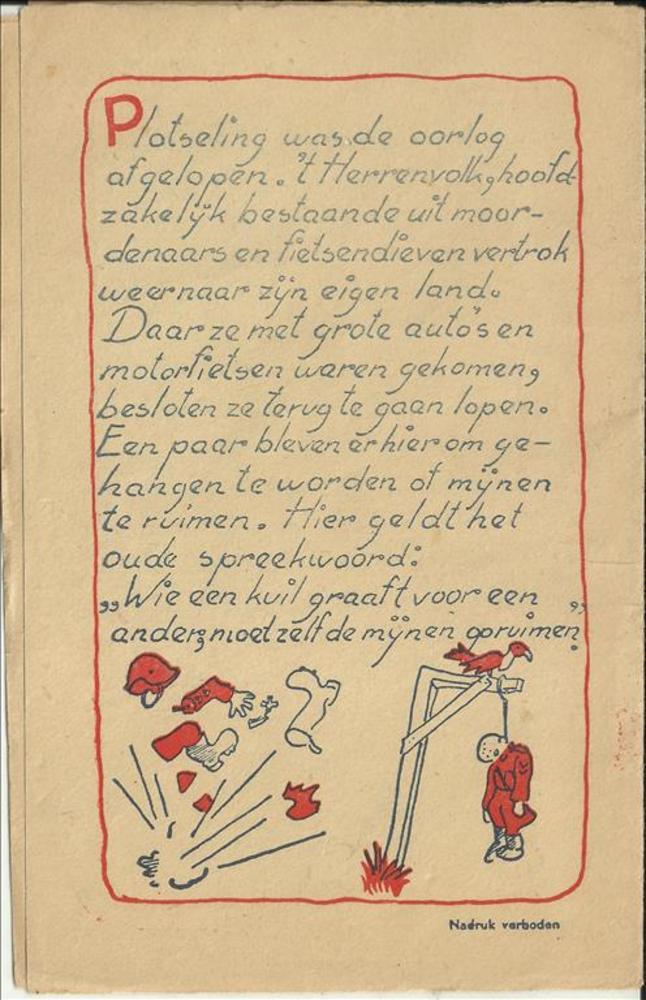 Plotseling was de oorlog
afgelopen. 't Herrenvolk, hoofd-
zakelijk bestaande uit moor-
denaars en fietsendieven vertrok
weer naar zijn eigen land.
Daar ze met grote auto's en
motorfietsen waren gekomen,
besloten ze terug te gaan lopen.
Een paar bleven er hier om ge-
hangen te worden of mijnen
te ruimen. Hier geldt het
oude spreekwoord:
„Wie een kuil graaft voor een
ander, moet zelf de mijnen opruimen."
Nadruk verboden